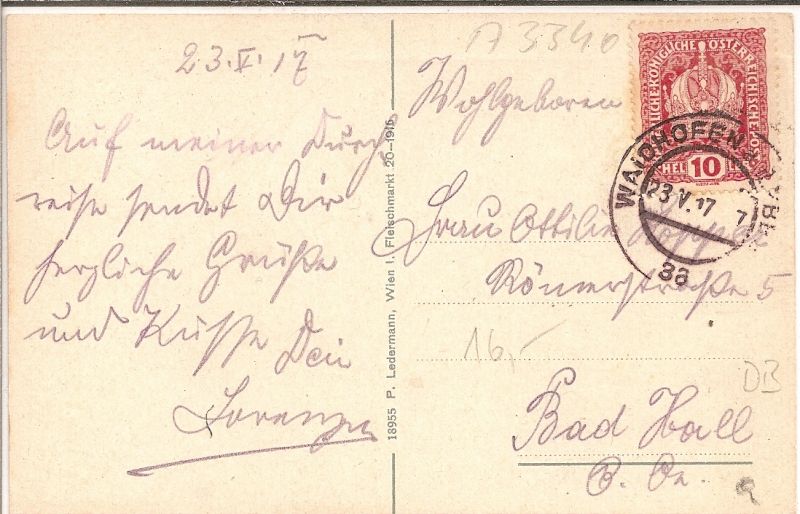 23.V.17
Auf meiner Durch
reise sendet Dir
herzliche Grüße
und Küsse Dein
Lorenz
18955 P. Ledermann, Wien I, Fleischmarkt 20-1915
A 3340
Wohlgeboren
Frau Ottilie
Römerstraße 5
16,-
DB
Bad Hall
O. Oe.
KÖNIGLICHE ÖSTERREICHISCHE
HEL 10
WAIDHOFEN
23.V.17 7
3a